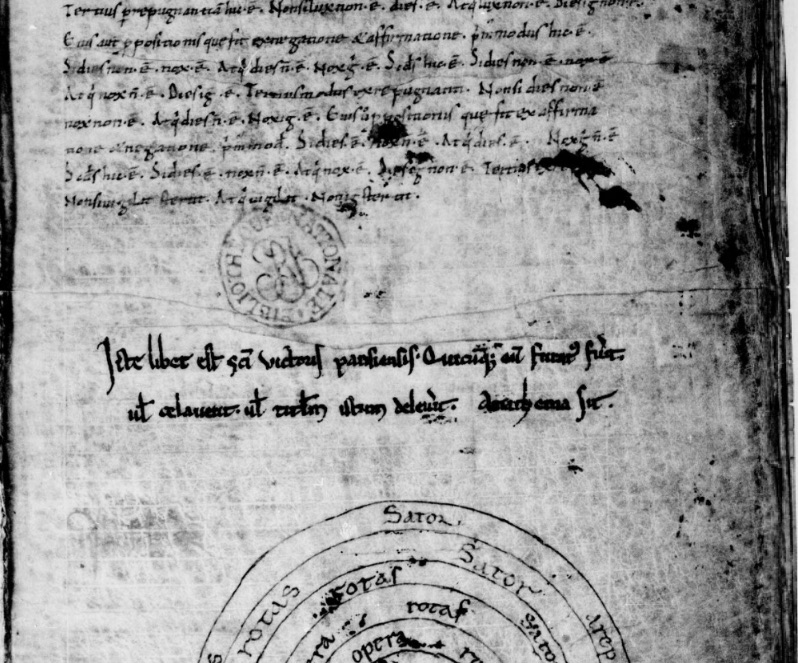 Tertius p̄ repugnantiā hic·ē· Nonsi lux non·ē· dies·ē· Atq̇ lux non·ē· Dies ig̅ non·ē·
Eius aut̄ p̄positionis que fit ex negatione & affirmatione· p̄mꝰ modus hic·ē·
Si dies non·ē· nox·ē· Atq̇ dies n̄·ē· Nox ig̅·ē· Sc̄ds hic·ē· Si dies non·ē· nox·ē·
Atq̇ nox n̄·ē· Dies ig̅·ē· Tertius modus ex repugnanti· Non si dies non·ē
nox non·ē· Atq̇ dies n̄·ē· Nox ig̅·ē· Eius p̄positionis que fit ex affirma
tione & negatione, p̄mꝰ mod· Si dies·ē· nox n̄·ē· Atq̇ dies·ē· Nox ig̅ n̄·ē
Sc̄ds hic·ē· Si dies·ē· nox n̄·ē· Atq̇ nox·ē· Dies ig̅ non·ē· Tertius ex
Non si uigilat stertit· Atq̇ uigilat· Non ig̅ stertit·
BIBLIOTHECAE NATIONALIS
Iste liber est sc̄i victoris parisiensis· Quicūq; eū furatꝰ fu̅it
ul̄ celauerit· ul̄ titl̄m istum deleu̅it· Anathema sit·
Sator
Sator
rotas
rotas
rotas
arep
sato
opera